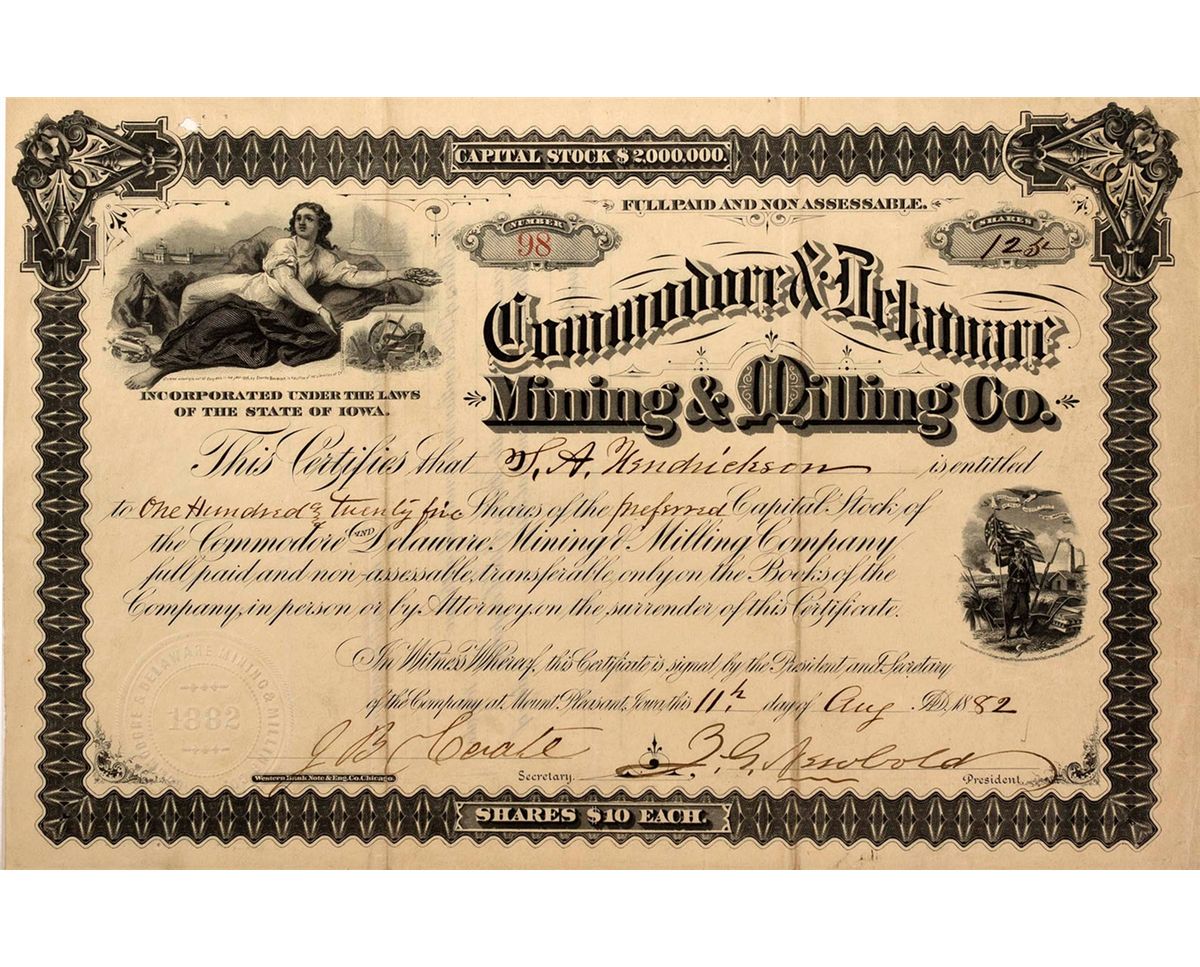 CAPITAL STOCK $2,000,000.
FULL PAID AND NON ASSESSABLE.
NUMBER
98
SHARES
125
Commodore & Delaware
Mining & Milling Co.
INCORPORATED UNDER THE LAWS
OF THE STATE OF IOWA.
This Certifies that S. A. Hendrickson is entitled
to One Hundred & Twenty five Shares of the preferred Capital Stock of
the Commodore AND Delaware Mining & Milling Company
full paid and non-assessable, transferable, only on the Books of the
Company, in person or by Attorney, on the surrender of this Certificate.
In Witness Whereof, this Certificate is signed by the President and Secretary
of the Company at Mount Pleasant, Iowa, this 11th. day of Aug A.D. 1882
& DELAWARE MINING &
1882
J B
J. G. Newbold
Western Bank Note & Eng. Co. Chicago.
Secretary.
President.
SHARES $10 EACH.